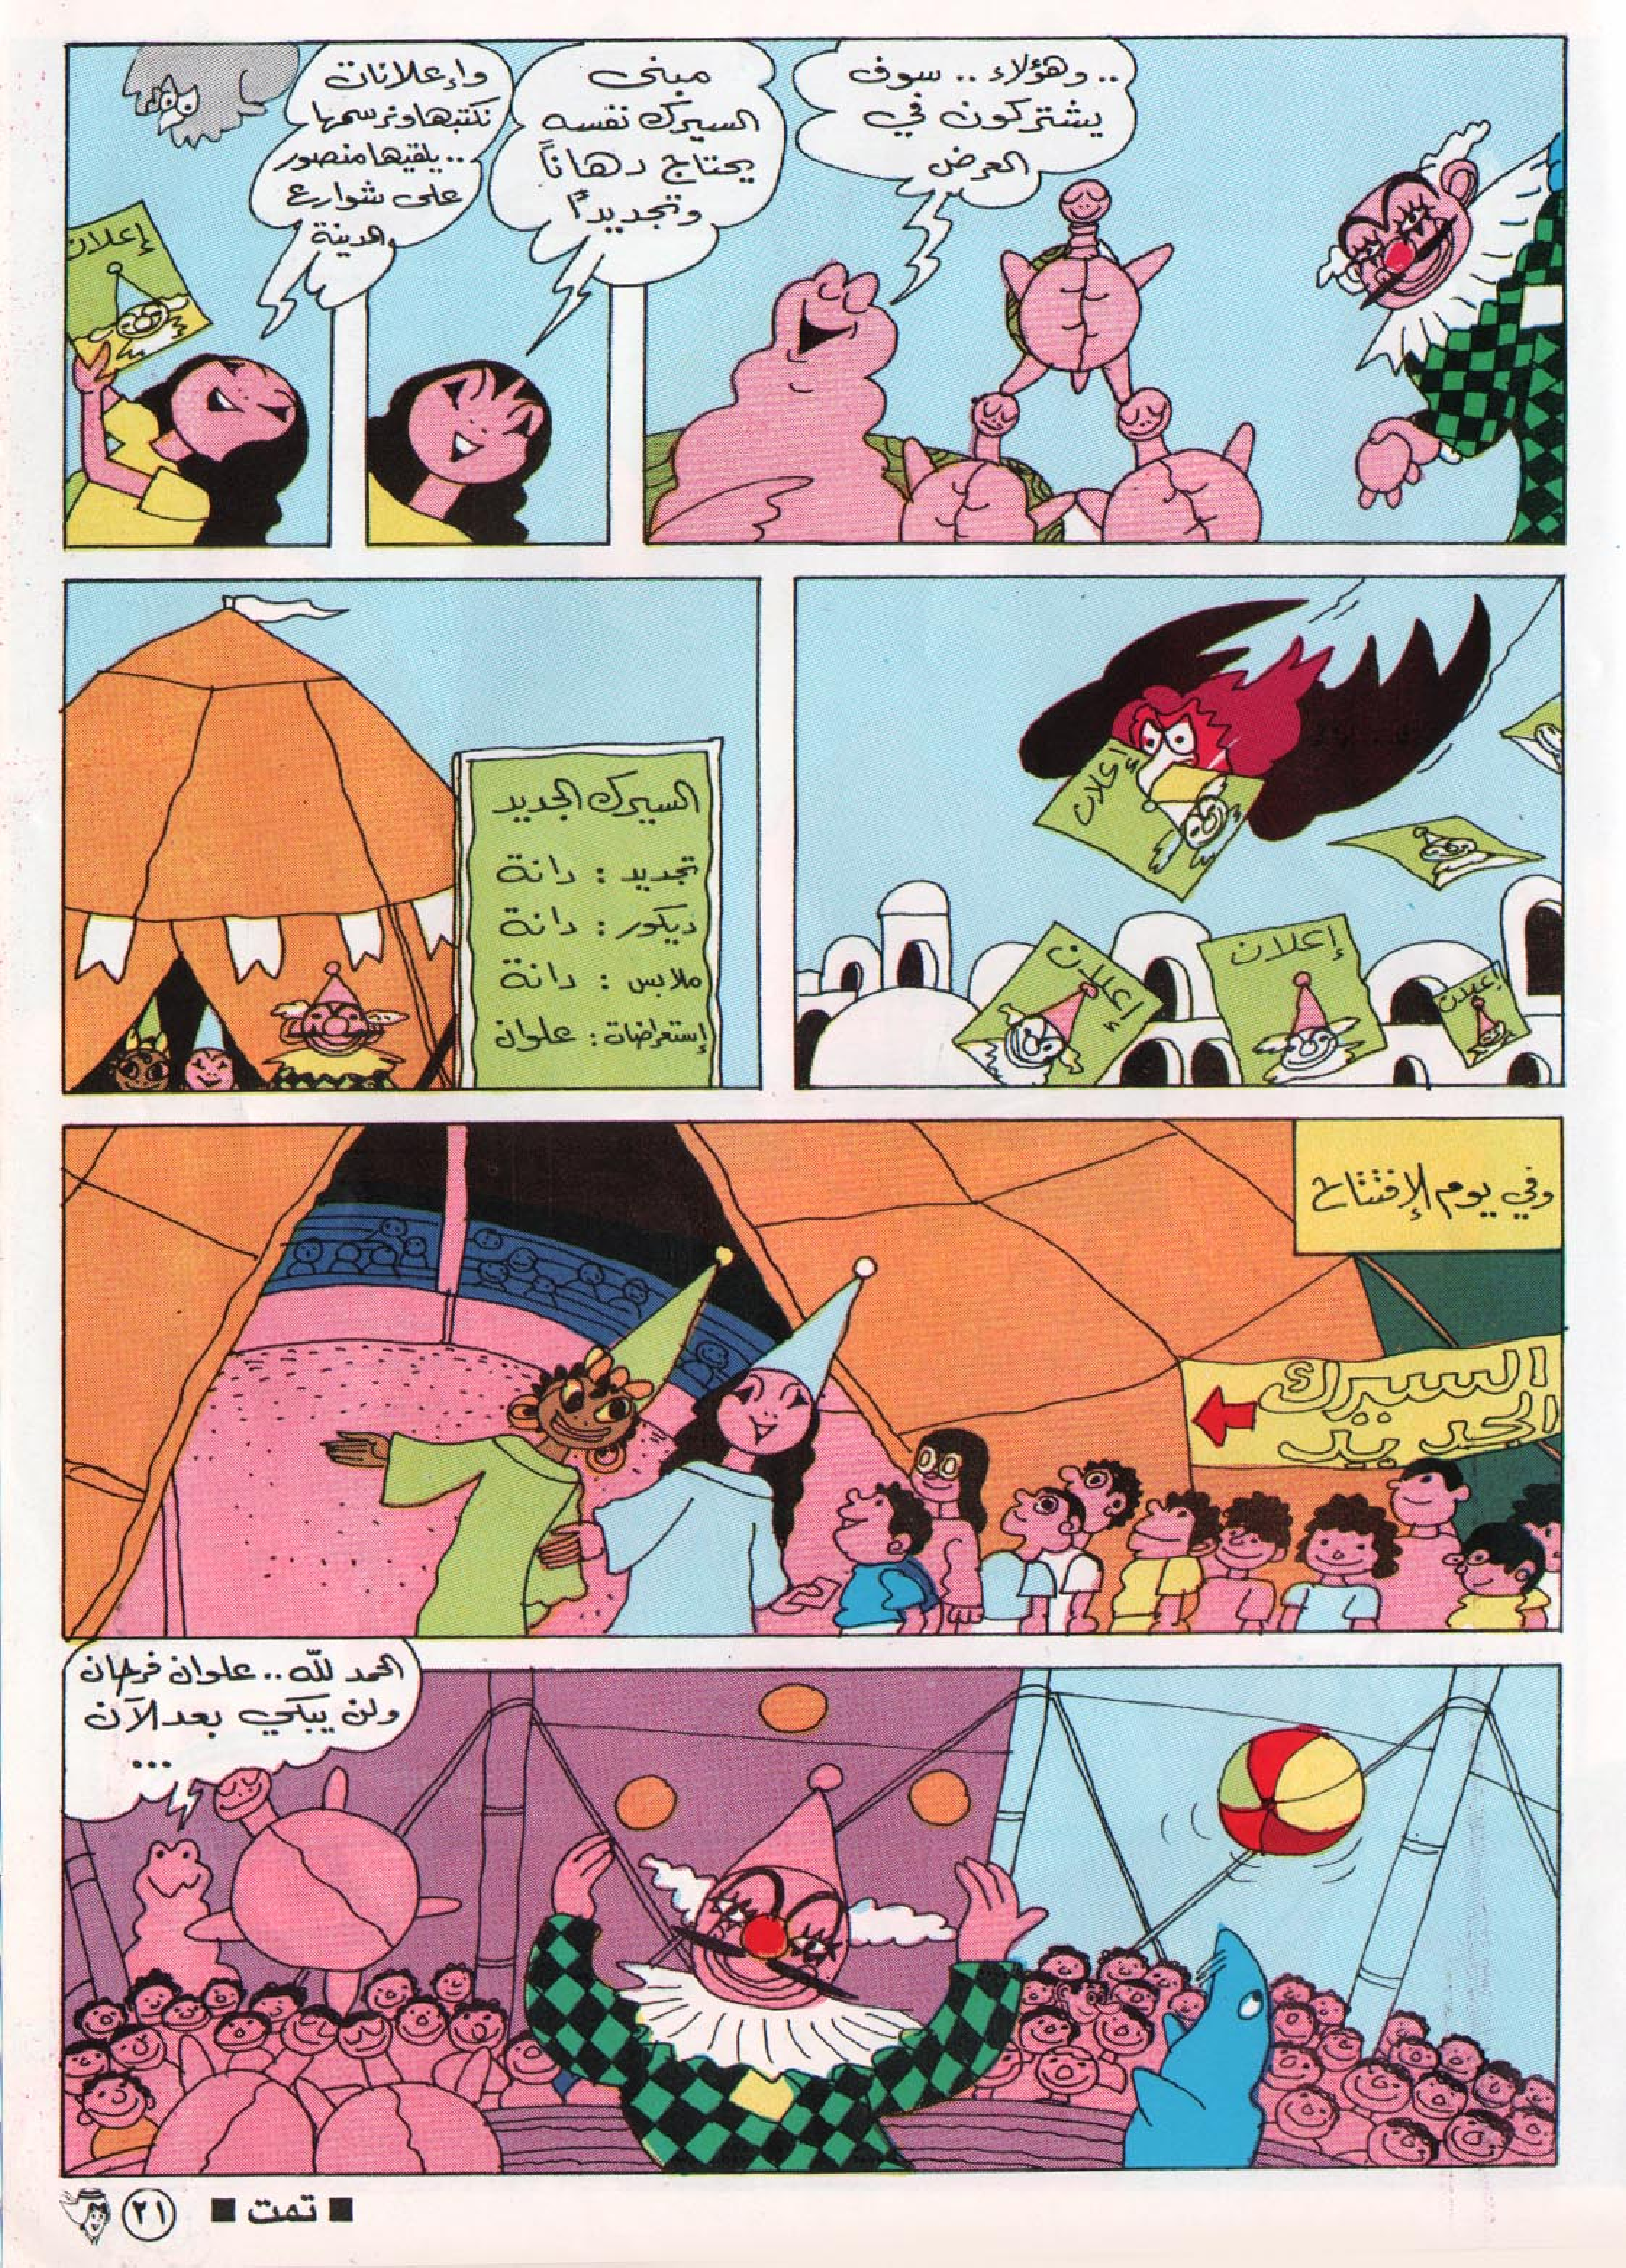 .. وهؤلاء .. سوف
يشتركون في
العرض
مبنى
السيرك نفسه
يحتاج دهاناً
وتجديداً
وإعلانات
نكتبها ونرسمها
.. يلقيها منصور
على شوارع
المدينة
إعلان
إعلان
إعلان
إعلان
إعلان
السيرك الجديد
تجديد : دانة
ديكور : دانة
ملابس : دانة
إستعراضات : علوان
وفي يوم الإفتتاح
السيرك
الجديد
الحمد لله .. علوان فرحان
ولن يبكي بعد الآن
...
■ تمت ■
٢١